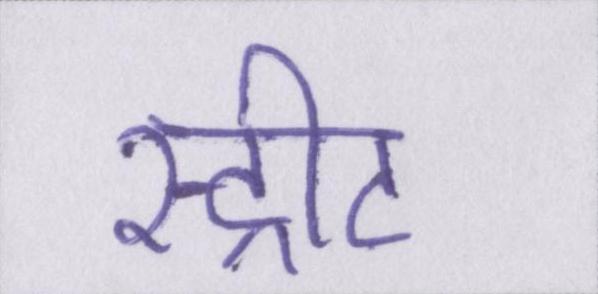 स्ट्रीट